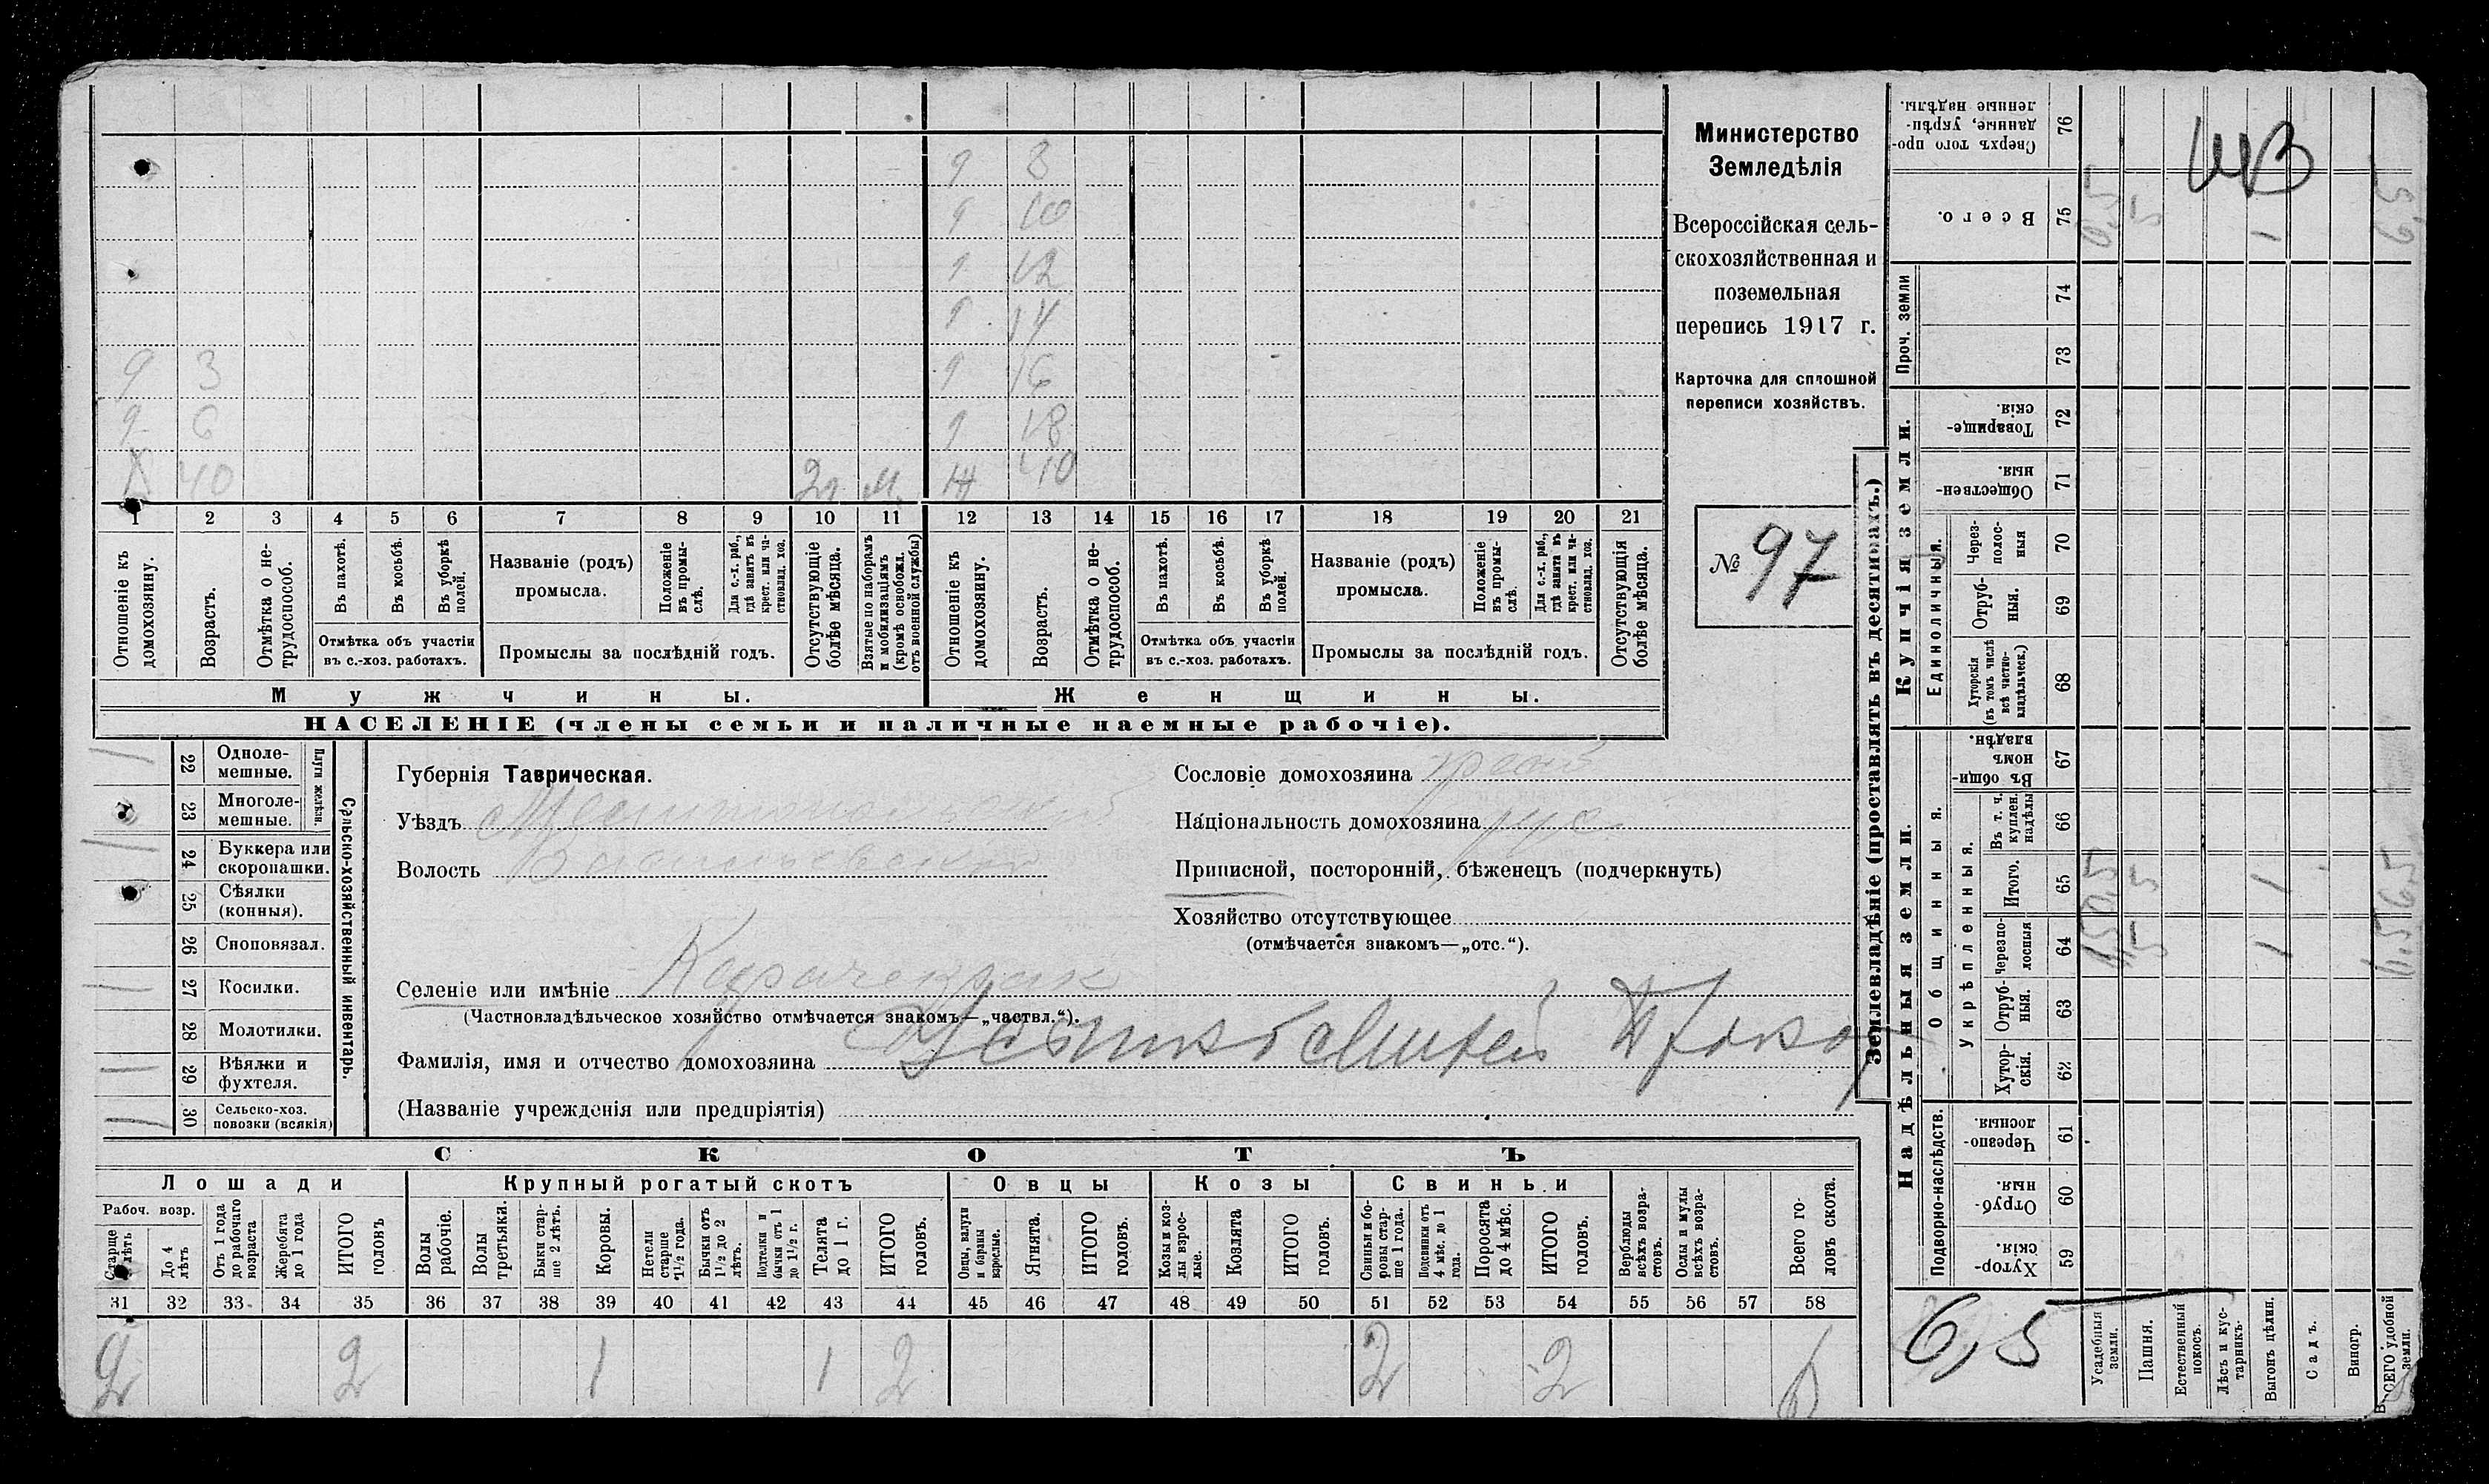 9 8
9 10
9 12
9 14
9 3 9 16
9 6 9 18
Х 40 2 м. Ж 40
1 2 3 4 5 6 7 8 9 10 11 12 13 14 15 16 17 18 19 20 21
Отношеніе къ домохозяину.
Возрастъ.
Отмѣтка о не-трудоспособ.
Въ пахотѣ.
Въ косьбѣ.
Въ уборкѣ полей.
Отмѣтка объ участіи
въ с.-хоз. работахъ.
Названіе (родъ)
промысла.
Положеніе въ промы-слѣ.
Для с.-х. раб., гдѣ занятъ въ крест. или ча-стновлад. хоз.
Промыслы за послѣдній годъ.
Отсутствующіе болѣе мѣсяца.
Взятые по наборамъ и мобилизаціямъ (кромѣ освобожд. отъ военной службы)
Отношеніе къ домохозяину.
Возрастъ.
Отмѣтка о не-трудоспособ.
Въ пахотѣ.
Въ косьбѣ.
Въ уборкѣ полей.
Отмѣтка объ участіи
въ с.-хоз. работахъ.
Названіе (родъ)
промысла.
Положеніе въ промы-слѣ.
Для с.-х. раб., гдѣ занята въ крест. или ча-стновлад. хоз.
Промыслы за послѣдній годъ.
Отсутствующія болѣе мѣсяца.
Мужчины. Женщины.
НАСЕЛЕНІЕ (члены семьи и наличные наемные рабочіе).
Министерство
Земледѣлія
Всероссійская сель-
скохозяйственная и
поземельная
перепись 1917 г.
Карточка для сплошной
переписи хозяйствъ.
№ 97
Сельско-хозяйственный инвентарь.
Плуги желѣзн.
1 22 Одноле-мешные.
23 Многоле-мешные.
1 24 Буккера или скоропашки.
25 Сѣялки (конныя).
26 Сноповязал.
1 27 Косилки.
28 Молотилки.
1 29 Вѣялки и фухтеля.
1 30 Сельско-хоз. повозки (всякія)
Губернія Таврическая.
Уѣздъ Мелитопольский
Волость Васильевская
Селеніе или имѣніе Карачекрак
(Частновладѣльческое хозяйство отмѣчается знакомъ—„частвл.“).
Фамилія, имя и отчество домохозяина
(Названіе учрежденія или предпріятія)
Сословіе домохозяина крест
Національность домохозяина рус.
Приписной, посторонній, бѣженецъ (подчеркнуть)
Хозяйство отсутствующее
(отмѣчается знакомъ—„отс.“).
СКОТЪ
Лошади Крупный рогатый скотъ Овцы Козы Свиньи
Рабоч. возр.
Старше 4 лѣтъ
До 4 лѣтъ
Отъ 1 года до рабочаго возраста
Жеребята до 1 года
ИТОГО головъ
Волы рабочіе.
Волы третьяки.
Быки стар-ше 2 лѣтъ.
Коровы.
Нетели старше 1½ года.
Бычки отъ 1½ до 2 лѣтъ.
Подтелки и бычки отъ 1 до 1½ г.
Телята до 1 г.
ИТОГО головъ.
Овцы, валухи и бараны взрослые.
Ягнята.
ИТОГО головъ.
Козы и коз-лы взрос-лые.
Козлята
ИТОГО головъ.
Свиньи и бо-ровы стар-ше 1 года.
Подсвинки отъ 4 мѣс. до 1 года.
Поросята до 4 мѣс.
ИТОГО головъ.
Верблюды всѣхъ возра-стовъ.
Ослы и мулы всѣхъ возра-стовъ.
Всего го-ловъ скота.
31 32 33 34 35 36 37 38 39 40 41 42 43 44 45 46 47 48 49 50 51 52 53 54 55 56 57 58
2 2 1 1 2 2 2 6
Землевладѣніе (проставлять въ десятинахъ.)
Надѣльныя земли. Купчія земли. Проч. земли
Подворно-наслѣдств.
Общинныя.
Укрѣпленныя.
Единоличныя.
Сверхъ того про-данные, укрѣп-ленные надѣлы. 76
Всего. 75 0,5 5 1 6,5
74
73
Товарище-скія. 72
Обществен-ныя. 71
Через-полос-ныя 70
Отруб-ныя. 69
Хуторскія (въ томъ числѣ всѣ частно-владѣльческ.) 68
Въ общи-номъ владѣн. 67
Въ т. ч. куплен. надѣлы 66
Итого. 65 0,5 5 1 6,5
Черезпо-лосныя 64 0,5 5 1 6,5
Отруб-ныя. 63
Хутор-скія. 62
Черезпо-лосныя 61
Отруб-ныя. 60
Хутор-скія. 59
6,5
Усадебныя земли.
Пашня.
Естественный покосъ.
Лѣсъ и кус-тарникъ.
Выгонъ цѣлин.
Садъ.
Виногр.
ВСЕГО удобной земли.